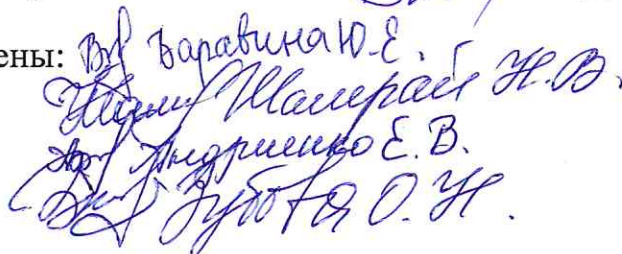 ены: Варавина Ю.Е.
Шамрай Н.В.
Андриенко Е.В.
Зубова О.Н.